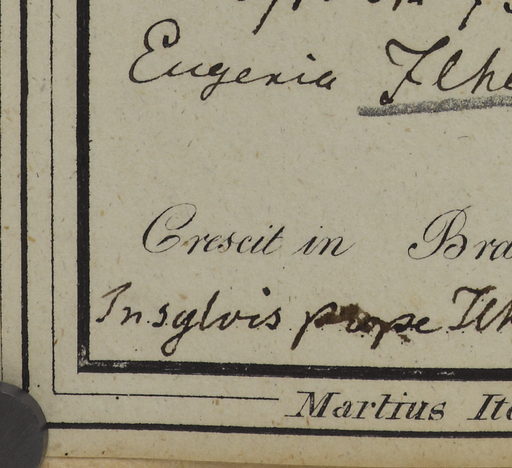 Eugenia Ilhe
Crescit in Bra
In sylvis prope Ilh
Martius Ite